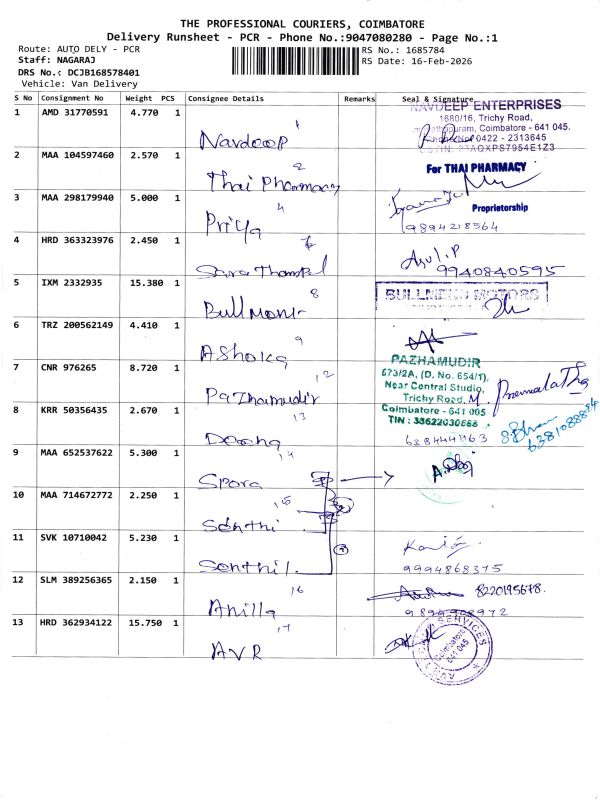 THE PROFESSIONAL COURIERS, COIMBATORE
Delivery Runsheet - PCR - Phone No.:9047080280 - Page No.:1
Route: AUTO DELY - PCR
RS No.: 1685784
Staff: NAGARAJ
RS Date: 16-Feb-2026
DRS No.: DCJB168578401
Vehicle: Van Delivery
S No Consignment No Weight PCS Consignee Details Remarks Seal & Signature
1 AMD 31770591 4.770 1 Navdeep 1
NAVDEEP ENTERPRISES
1680/16, Trichy Road,
Coimbatore - 641 045.
0422 - 2313645
2 MAA 104597460 2.570 1 Thai Pharmacy 2
For THAI PHARMACY
Proprietorship
3 MAA 298179940 5.000 1 Priya 4
9894218564
4 HRD 363323976 2.450 1
Asul.P
9940840595
5 IXM 2332935 15.380 1 Bullmenn 8
BULLMENN MOTORS
6 TRZ 200562149 4.410 1 AShoka 9
7 CNR 976265 8.720 1 Pazhamudir 12
PAZHAMUDIR
673/2A, (D. No. 654/1),
Near Central Studio,
Trichy Road,
Coimbatore - 641 005
TIN : 33622030688
M. Premalatha
8 KRR 50356435 2.670 1 13
9 MAA 652537622 5.300 1 Spora 14
10 MAA 714672772 2.250 1 Senthil 15
11 SVK 10710042 5.230 1 Senthil
9994868375
12 SLM 389256365 2.150 1 16
8220195678.
13 HRD 362934122 15.750 1 AVR 17
SERVICES
Coimbatore
641 045